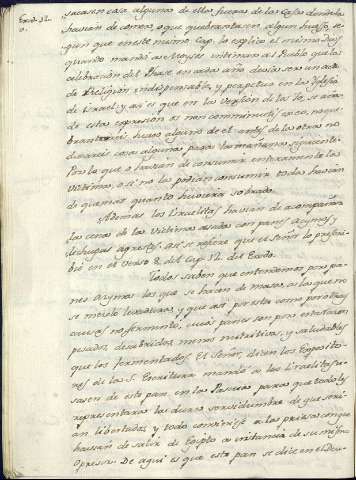 Exod. 12.
sacasen cosa alguna de ella fuera de las Casas donde la
havian de comer, o que quebrantaran algun hueso, se-
gun que en este mismo Cap. lo explicó el mismo Dios,
quando mandó a Moyses intimara al Pueblo que la
celebracion del Phase en cada año devia ser un acto
de Religion indispensable, y perpetuo en la Iglesia
de Israel; y asi es que en la Version de los 70, se aña-
de esta expresion os non comminuetis ex eo, no que-
brantareis hueso alguno de el antes de las otras no
dexareis cosa alguna para la mañana siguiente.
Por lo que o havian de consumir enteramente la
Victima, o si no la podian consumir toda havian
de quemar quanto huviera sobrado.
Ademas los Israelitas havian de acompañar
las cenas de las Victimas asadas con panes azymos y
lechugas agrestes, asi se refiere que el Señor lo prescri-
bió en el verso 8. del Cap. 12. del Exodo.
Todos saben que entendemos por pa-
nes azymos los que se hacen de masa, a la que no
se mezcla levadura, y que asi por esta como por otras
causas no fermentó, cuios panes son por esta razon
pesados, desabridos, menos nutritivos, y saludables
que los fermentados. El Señor, dicen los Exposito-
res de la S. Escritura mandó a los Israelitas u-
sasen de este pan en la Pascua para que todo les
representara la dura servidumbre de que serí-
an libertados, y todo conviniese a la priesa con que
havian de salir de Egipto a instancia de sus mismos
Opresores. De aqui es que este pan se dice en el Deu-